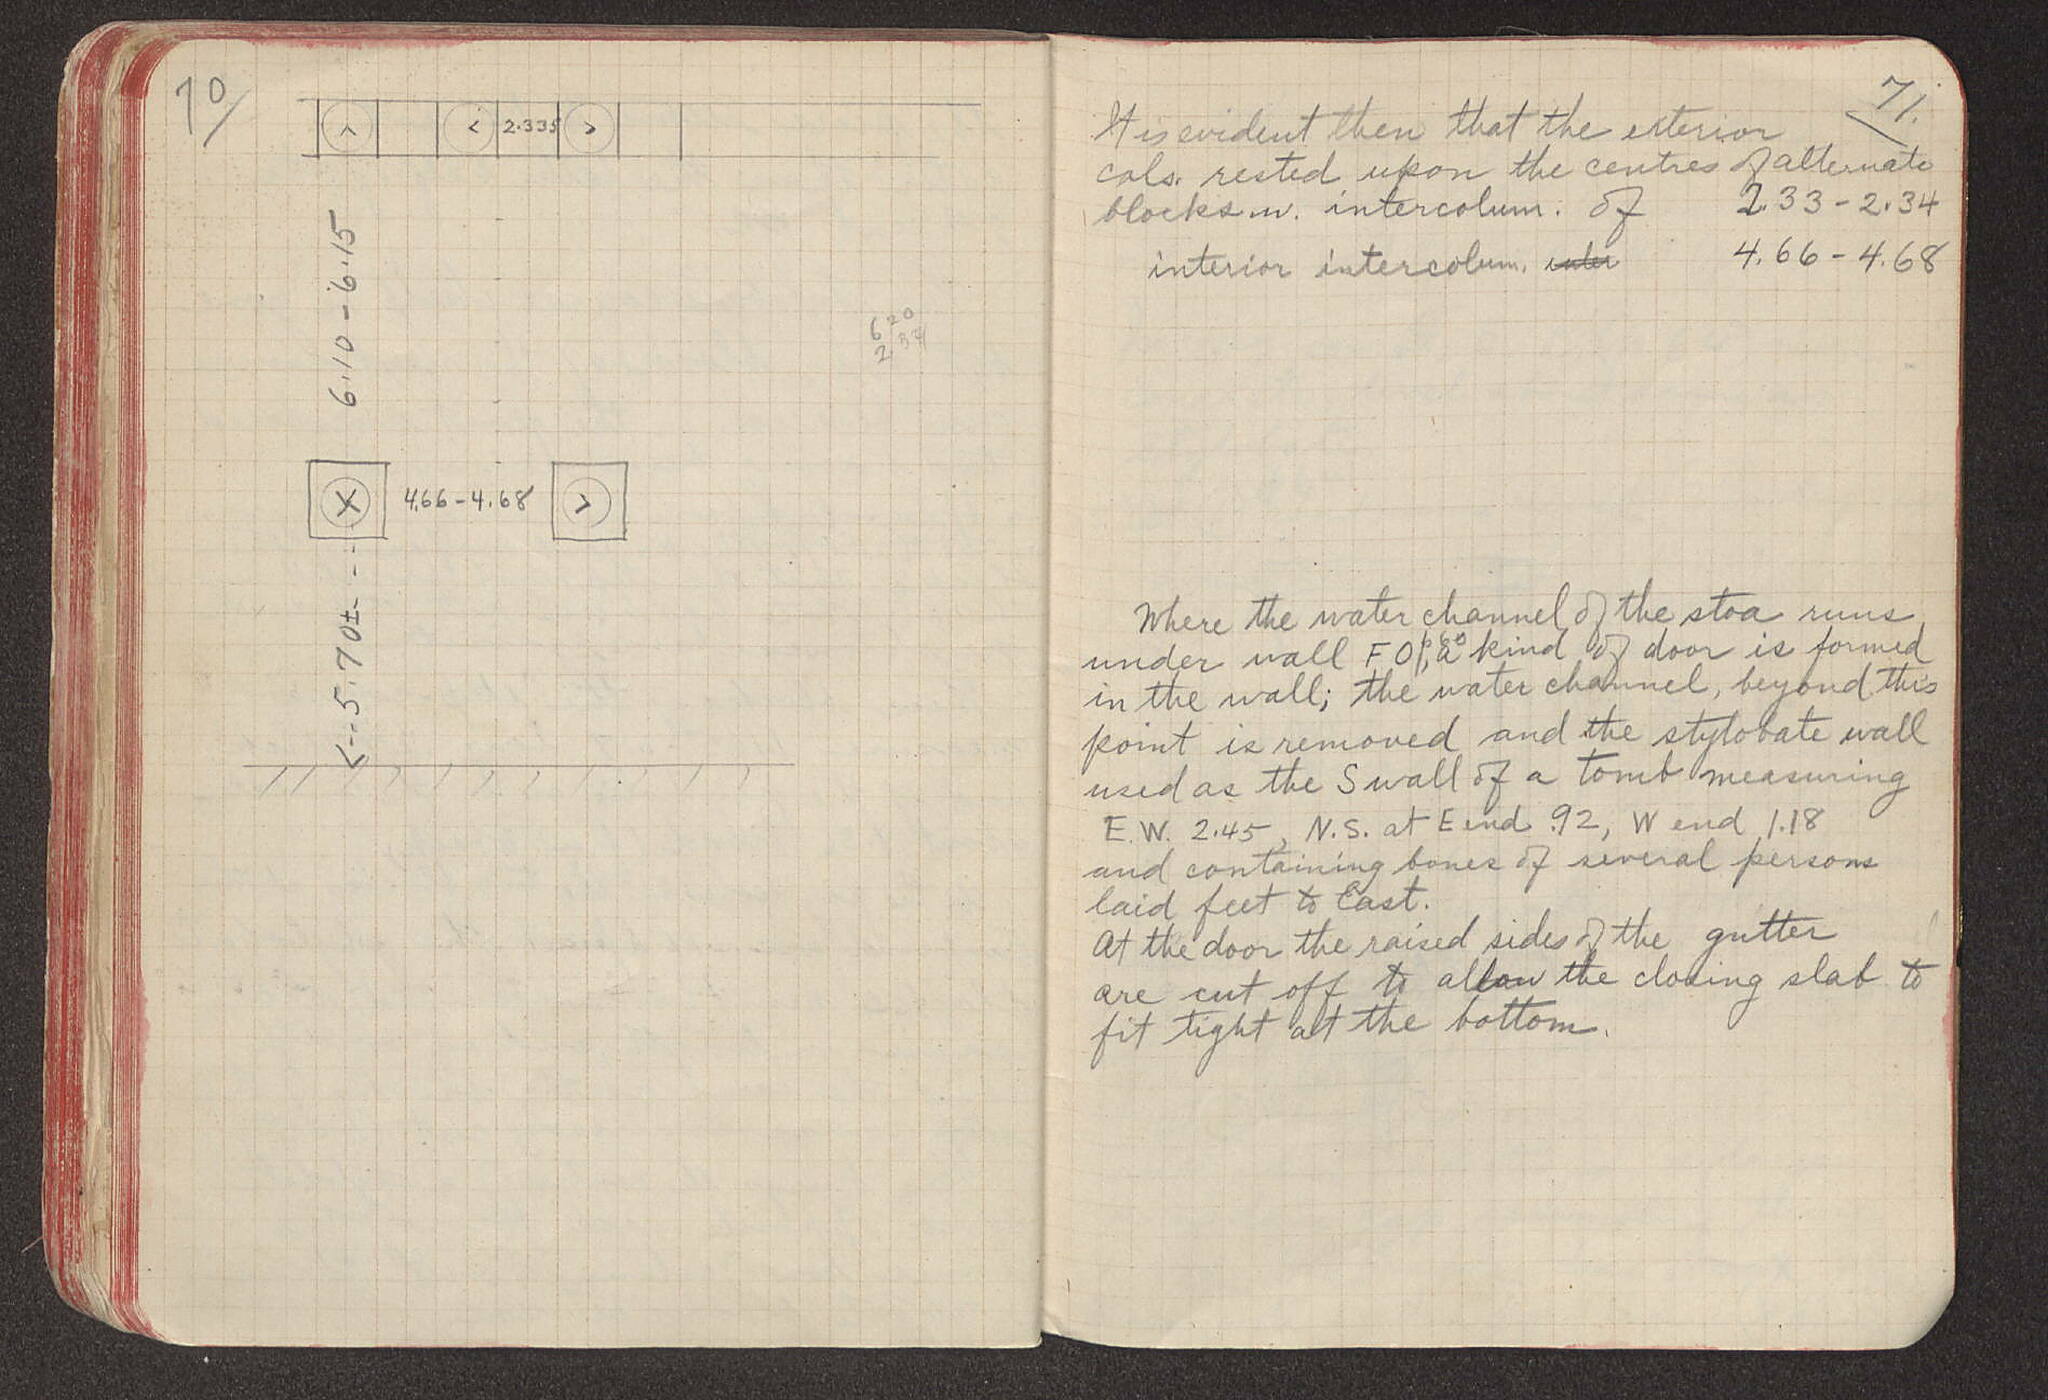 70/
2.335
6.10 - 6.15
6 20
2
4.66 - 4.68
5.70±
71.
It is evident then that the exterior
cols. rested upon the centres of alternate
blocks w. intercolum. of 2.33 - 2.34
interior intercolum. 4.66 - 4.68
Where the water channel of the stoa runs
under wall FO, a kind of door is formed
in the wall; the water channel, beyond this
point is removed and the stylobate wall
used as the S wall of a tomb measuring
E.W. 2.45, N.S. at E end .92, W end 1.18
and containing bones of several persons
laid feet to East.
At the door the raised sides of the gutter
are cut off to allow the closing slab to
fit tight at the bottom.